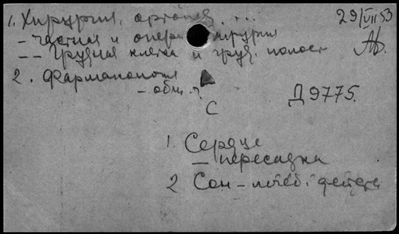 1. Хирургия, ортопед. ...
29/VII 53
- частная и опер. хирургия
-- Грудная клетка и груд. полост
2. Фармакология
- общ.
Д 9775.
С
1 Сердце
- пересадка
2 Сон - лечеб. действ